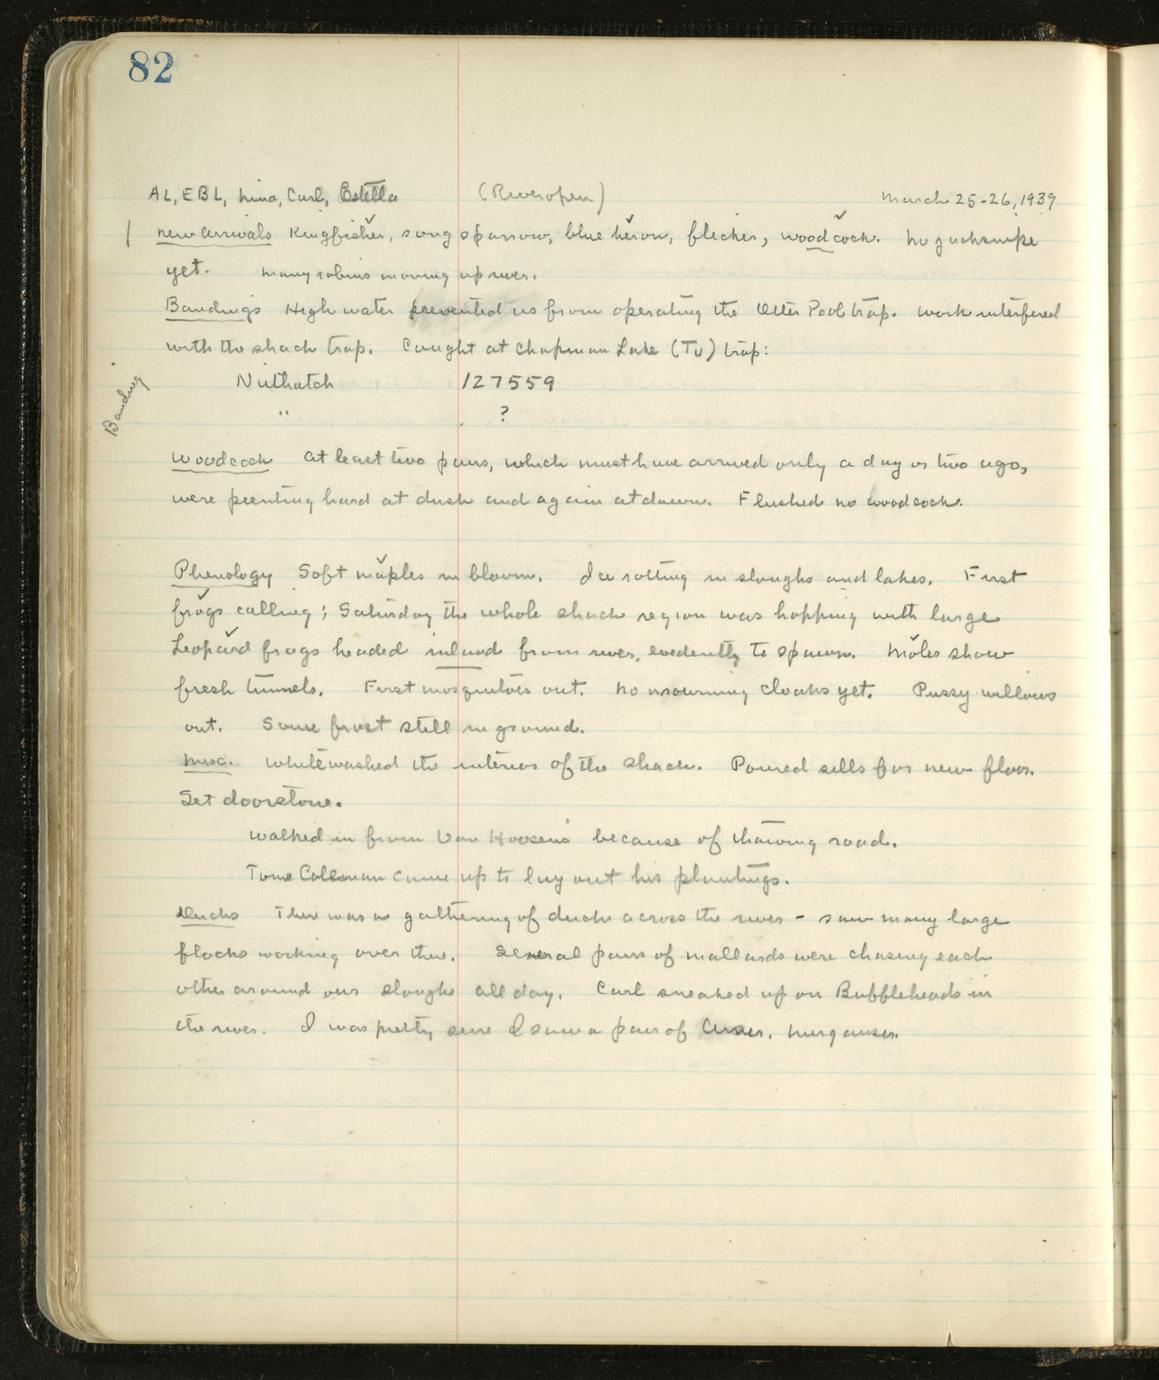 82
AL, EBL, Nina, Carl, Estella (River open) March 25-26, 1939
New Arrivals Kingfisher, song sparrow, blue heron, flicker, woodcock. No jacksnipe
yet. Many robins moving up river.
Bandings High water prevented us from operating the Otter Pool trap. Work interfered
with the shack trap. Caught at Chapman Lake (Tu) trap:
Nuthatch 127559
" ?
Banding
Woodcock At least two pairs, which must have arrived only a day or two ago,
were peenting hard at dusk and again at dawn. Flushed no woodcock.
Phenology Soft maples in bloom. Ice rotting in sloughs and lakes. First
frogs calling; Saturday the whole shack region was hopping with large
Leopard frogs headed inland from river, evidently to spawn. Moles show
fresh tunnels. First mosquitoes out. No mourning cloaks yet. Pussy willows
out. Some frost still in ground.
Misc. Whitewashed the interior of the shack. Poured sills for new floor.
Set doorstone.
Walked in from Van Hoosens because of thawing road.
Tom Coleman came up to lay out his plantings.
Ducks There was a gathering of ducks across the river - saw many large
flocks working over there. Several pairs of mallards were chasing each
other around our sloughs all day. Carl sneaked up on Buffleheads in
the river. I was pretty sure I saw a pair of Amer. Merganser.